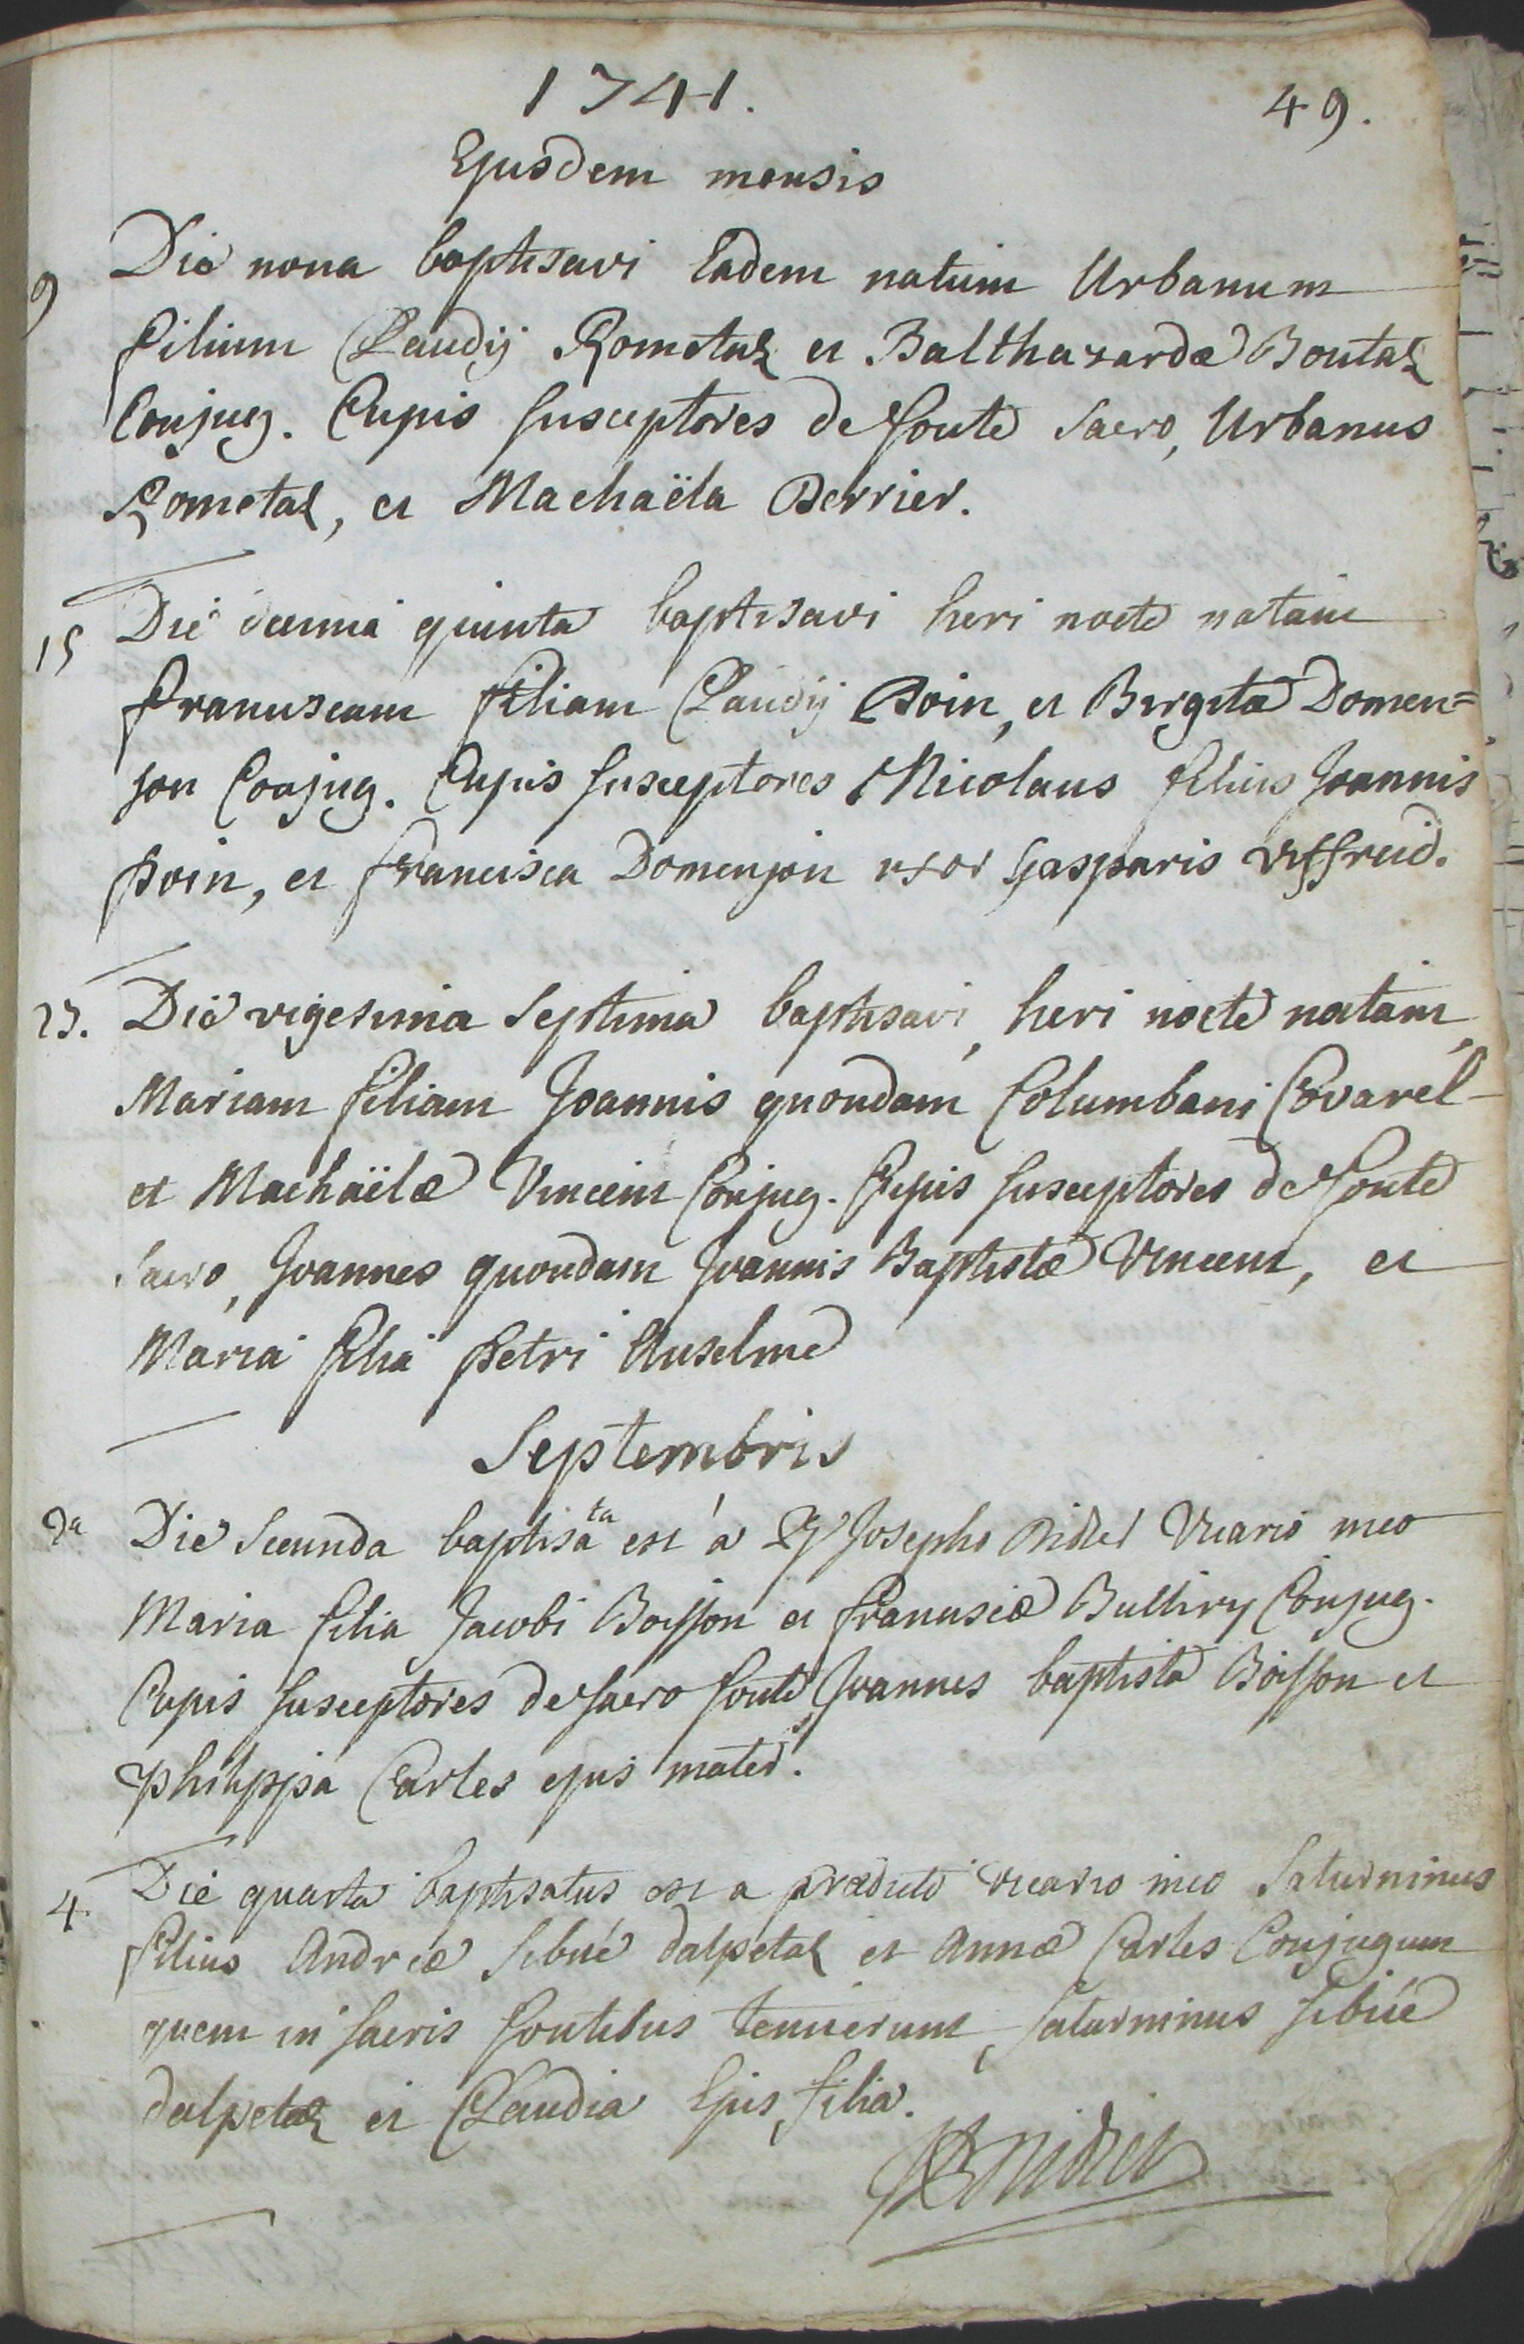 1741.
49.
Ejusdem mensis
9
Die nona baptisavi Eadem natum Urbanum
filium Claudij Rometaz et Balthazardæ Boutaz
Conjug. Eujus susceptores de fonte sacro, Urbanus
Rometaz, et Machaëla Perrier.
15
Die decima quinta baptisavi heri nocte natam
franciscam filiam Claudij Poin, et Birgitæ Domen=
jon Conjug. Cujus susceptores Nicolaus filius Joannis
Poin, et francisca Domenjon uxor Gasparis Viffreid.
27.
Die vigesima septima baptisavi, heri nocte natam,
Mariam filiam Joannis quondam Columbani Covarel
et Machaëlæ Vincent Conjug. Cujus susceptores de fonte
sacro, Joannes quondam Joannis Baptistæ Vincent, et
Maria filia Petri Anselme
Septembris
2a
Die secunda baptisata est a Rd Josepho Didier Vicario meo
Maria filia Jacobi Boisson et franciscæ Bulliry Conjug.
Cujus susceptores de sacro fonte, Joannes baptista Boisson et
Philippa Carles ejus mater.
4.
Die quarta baptisatus est a prædicto vicario meo Saturninus
filius Andreæ Sibué dalpetaz et Annæ Carles Conjugum
quem in sacris fontibus tenuerunt, saturninus sibué
dalpetaz et Claudia Ejus filia.